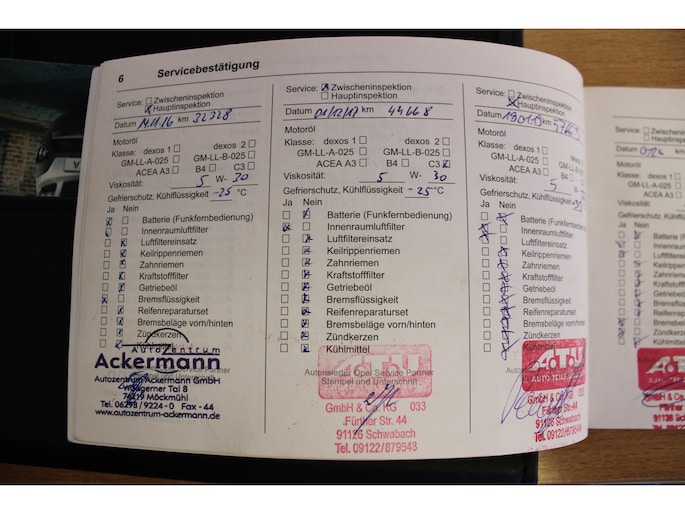 6 Servicebestätigung
Service: Zwischeninspektion
Hauptinspektion
Datum 14.11.16 km 32328
Motoröl
Klasse: dexos 1 dexos 2
GM-LL-A-025 GM-LL-B-025
ACEA A3 B4 C3
Viskosität: 5 W- 30
Gefrierschutz, Kühlflüssigkeit -25 °C
Ja Nein
Batterie (Funkfernbedienung)
Innenraumluftfilter
Luftfiltereinsatz
Keilrippenriemen
Zahnriemen
Kraftstofffilter
Getriebeöl
Bremsflüssigkeit
Reifenreparaturset
Bremsbeläge vorn/hinten
Zündkerzen
Kühlmittel
AutoZentrum
Ackermann
Autozentrum Ackermann GmbH
Tal 8
74219 Möckmühl
Tel. 06298 / 9224 - 0 Fax - 44
www.autozentrum-ackermann.de
Service: Zwischeninspektion
Hauptinspektion
Datum 01/12/17 km 44668
Motoröl
Klasse: dexos 1 dexos 2
GM-LL-A-025 GM-LL-B-025
ACEA A3 B4 C3
Viskosität: 5 W- 30
Gefrierschutz, Kühlflüssigkeit -25 °C
Ja Nein
Batterie (Funkfernbedienung)
Innenraumluftfilter
Luftfiltereinsatz
Keilrippenriemen
Zahnriemen
Kraftstofffilter
Getriebeöl
Bremsflüssigkeit
Reifenreparaturset
Bremsbeläge vorn/hinten
Zündkerzen
Kühlmittel
Autorisierter Opel Service Partner
Stempel und Unterschrift
A.T.U
GmbH & Co. KG 033
Fürther Str. 44
91126 Schwabach
Tel. 09122/879548
Service: Zwischeninspektion
Hauptinspektion
Datum km
Motoröl
Klasse: dexos 1 dexos 2
GM-LL-A-025 GM-LL-B-025
ACEA A3 B4 C3
Viskosität: 5
Gefrierschutz, Kühlflüssigkeit
Ja Nein
Batterie (Funkfernbedienung)
Innenraumluftfilter
Luftfiltereinsatz
Keilrippenriemen
Zahnriemen
Kraftstofffilter
Getriebeöl
Bremsflüssigkeit
Reifenreparaturset
Bremsbeläge vorn/hinten
Zündkerzen
Kühlmittel
A.T.U
AUTO
GmbH & Co. KG 033
Fürther Str. 44
91126 Schwabach
Tel. 09122/879548
Service: Zwischeninspektion
Hauptinspektion
Datum
Motoröl
Klasse: dexos 1
GM-LL-A-025
ACEA A3
Viskosität:
Gefrierschutz, Kühlflüssigkeit
Ja Nein
Batterie
Innenraumluftfilter
Luftfiltereinsatz
Keilrippenriemen
Zahnriemen
Kraftstofffilter
Getriebeöl
Bremsflüssigkeit
Reifenreparaturset
Bremsbeläge
Zündkerzen
GmbH & Co.
Fürther
91126
Tel. 09122